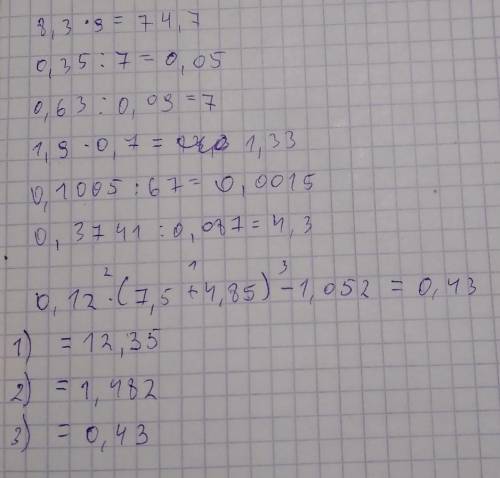 8,3·9=74,7
0,35:7=0,05
0,63:0,09=7
1,9·0,7= 1,33
0,1005:67=0,0015
0,3741:0,087=4,3
2 1 3
0,12·(7,5+4,85)-1,052=0,43
1) =12,35
2) =1,482
3) =0,43